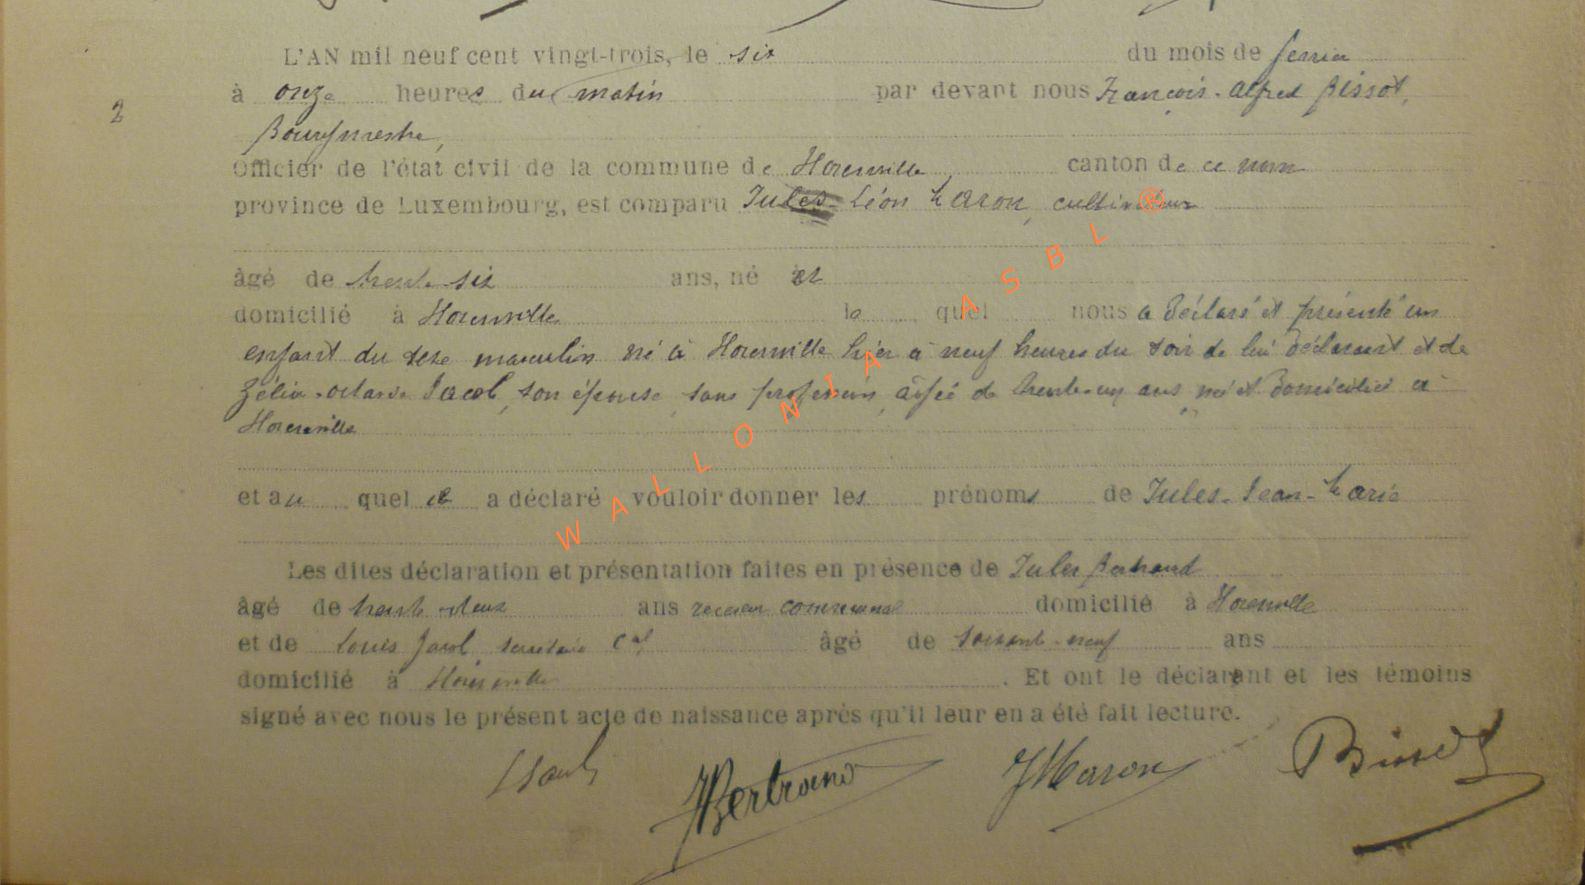 L'AN mil neuf cent vingt-trois, le six du mois de
2
à onze heures du matin par devant nous François-Alfred Bissot,
Bourgmestre,
Officier de l'état civil de la commune de Hompré canton de ce nom
province de Luxembourg, est comparu Jules-Léon Maron, cultivateur
âgé de trente-six ans, né et
domicilié à le quel nous a déclaré et présenté un
enfant du sexe masculin né à hier à neuf heures du soir de lui déclarant et de
Zélia-Octavie Jacob, son épouse, sans profession, âgée de trente-un ans, née et domiciliée à
et au quel il a déclaré vouloir donner les prénoms de Jules-Jean-Marie
Les dites déclaration et présentation faites en présence de Jules Bertrand
âgé de trente-deux ans receveur communal domicilié à
et de Louis Jacob, secrétaire cal âgé de soixante-neuf ans
domicilié à . Et ont le déclarant et les témoins
signé avec nous le présent acte de naissance après qu'il leur en a été fait lecture.
LJacob JBertrand JMaron Bissot
WALLONIA ASBL ®